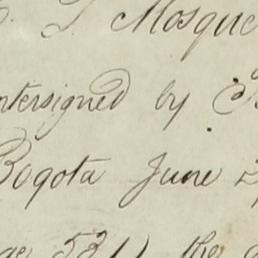 Mosque
ntersigned by
Bogota June
531) the